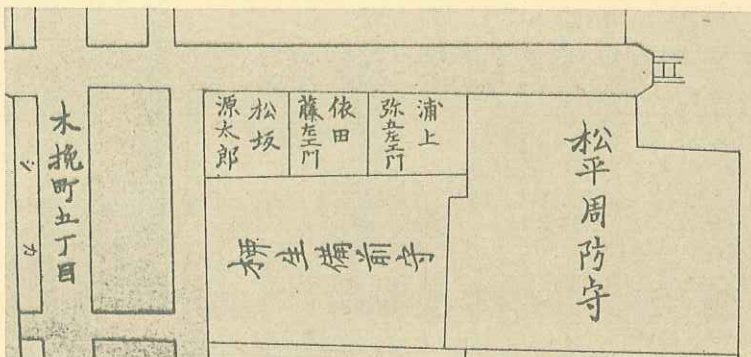 松平周防守
浦上
弥五左エ門
依田
藤左エ門
松坂
源太郎
柳生備前守
木挽町五丁目
シカ